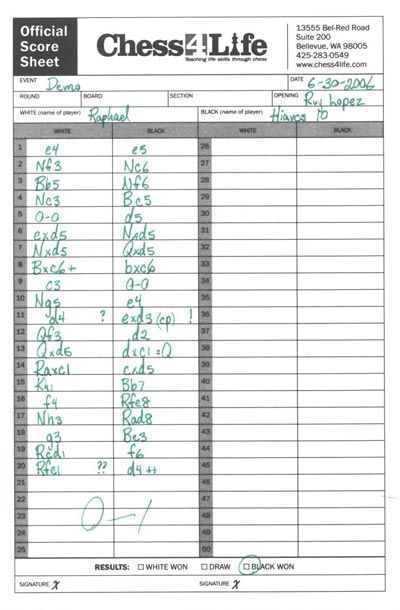 Official
Score
Sheet
Chess4Life
Teaching life skills through chess
13555 Bel-Red Road
Suite 200
Bellevue, WA 98005
425-283-0549
www.chess4life.com
EVENT Demo DATE 6-30-2006
ROUND BOARD SECTION OPENING Ruy Lopez
WHITE (name of player) Raphael BLACK (name of player)
WHITE BLACK WHITE BLACK
1 e4 e5 26
2 Nf3 Nc6 27
3 Bb5 Nf6 28
4 Nc3 Bc5 29
5 0-0 d5 30
6 exd5 Nxd5 31
7 Nxd5 Qxd5 32
8 Bxc6+ bxc6 33
9 c3 0-0 34
10 Ng5 e4 35
11 d4 ? exd3 (ep) ! 36
12 Qf3 d2 37
13 Qxd5 dxc1=Q 38
14 Raxc1 cxd5 39
15 Kh1 Bb7 40
16 f4 Rfe8 41
17 Nh3 Rad8 42
18 g3 Be3 43
19 Rcd1 f6 44
20 Rfe1 ?? d4++ 45
21 46
22 47
23 48
24 49
25 50
0-1
RESULTS: WHITE WON DRAW BLACK WON
SIGNATURE X SIGNATURE X